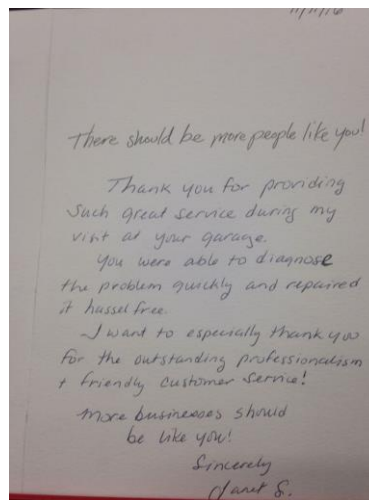 11/11/16
There should be more people like you!
Thank you for providing
such great service during my
visit at your garage.
You were able to diagnose
the problem quickly and repaired
it hassel free.
I want to especially thank you
for the outstanding professionalism
+ friendly customer service!
More businesses should
be like you!
Sincerely
Janet S.